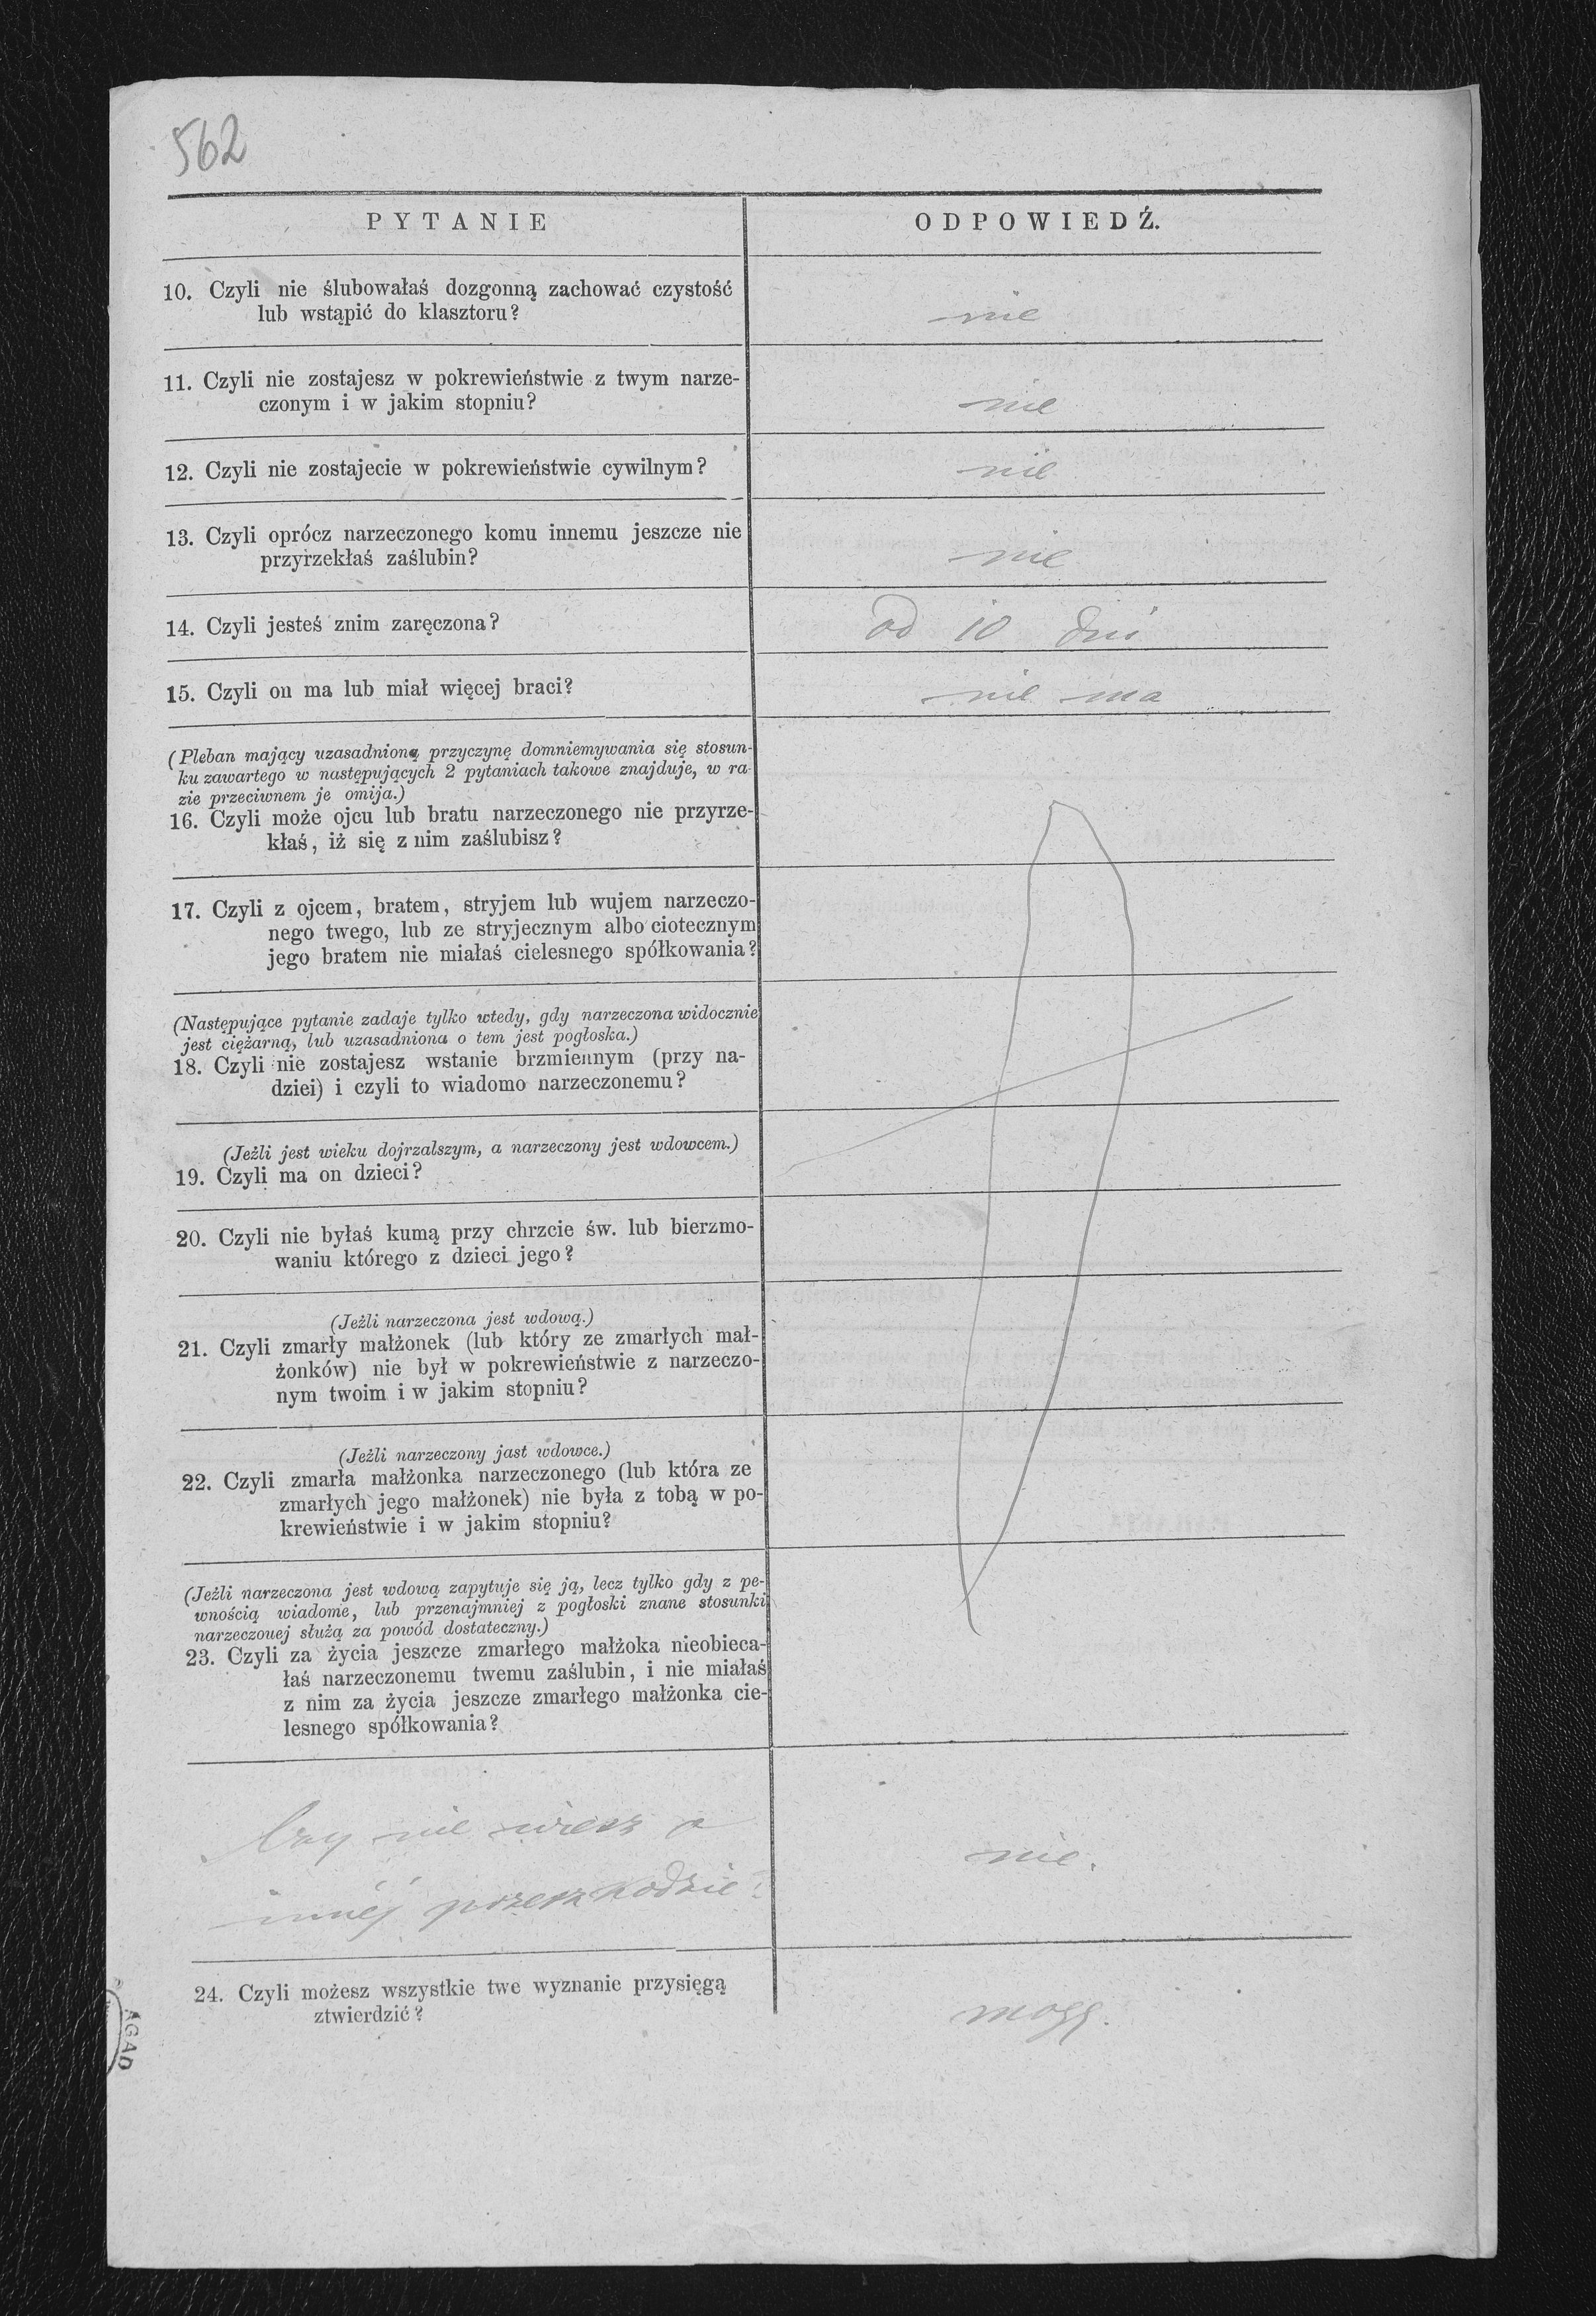 562
PYTANIE
ODPOWIEDŹ.
10. Czyli nie ślubowałaś dozgonną zachować czystość
lub wstąpić do klasztoru?
nie
11. Czyli nie zostajesz w pokrewieństwie z twym narze-
czonym i w jakim stopniu?
nie
12. Czyli nie zostajecie w pokrewieństwie cywilnym?
nie
13. Czyli oprócz narzeczonego komu innemu jeszcze nie
przyrzekłaś zaślubin?
nie
14. Czyli jesteś znim zaręczona?
od 10 dni
15. Czyli on ma lub miał więcej braci?
nie ma
(Pleban mający uzasadnioną przyczynę domniemywania się stosun-
ku zawartego w następujących 2 pytaniach takowe znajduje, w ra-
zie przeciwnem je omija.)
16. Czyli może ojcu lub bratu narzeczonego nie przyrze-
kłaś, iż się z nim zaślubisz?
17. Czyli z ojcem, bratem, stryjem lub wujem narzeczo-
nego twego, lub ze stryjecznym albo ciotecznym
jego bratem nie miałaś cielesnego spółkowania?
(Następujące pytanie zadaje tylko wtedy, gdy narzeczona widocznie
jest ciężarną, lub uzasadniona o tem jest pogłoska.)
18. Czyli nie zostajesz wstanie brzmiennym (przy na-
dziei) i czyli to wiadomo narzeczonemu?
(Jeźli jest wieku dojrzalszym, a narzeczony jest wdowcem.)
19. Czyli ma on dzieci?
20. Czyli nie byłaś kumą przy chrzcie św. lub bierzmo-
waniu którego z dzieci jego?
(Jeźli narzeczona jest wdową.)
21. Czyli zmarły małżonek (lub który ze zmarłych mał-
żonków) nie był w pokrewieństwie z narzeczo-
nym twoim i w jakim stopniu?
(Jeźli narzeczony jast wdowce.)
22. Czyli zmarła małżonka narzeczonego (lub która ze
zmarłych jego małżonek) nie była z tobą w po-
krewieństwie i w jakim stopniu?
(Jeźli narzeczona jest wdową zapytuje się ją, lecz tylko gdy z pe-
wnością wiadome, lub przenajmniej z pogłoski znane stosunki
narzeczouej służą za powód dostateczny.)
23. Czyli za życia jeszcze zmarłego małżoka nieobieca-
łaś narzeczonemu twemu zaślubin, i nie miałaś
z nim za życia jeszcze zmarłego małżonka cie-
lesnego spółkowania?
Czy nie wiesz o
innéj przeszkodzie?
nie.
24. Czyli możesz wszystkie twe wyznanie przysięgą
ztwierdzić?
mogę.
AGAD